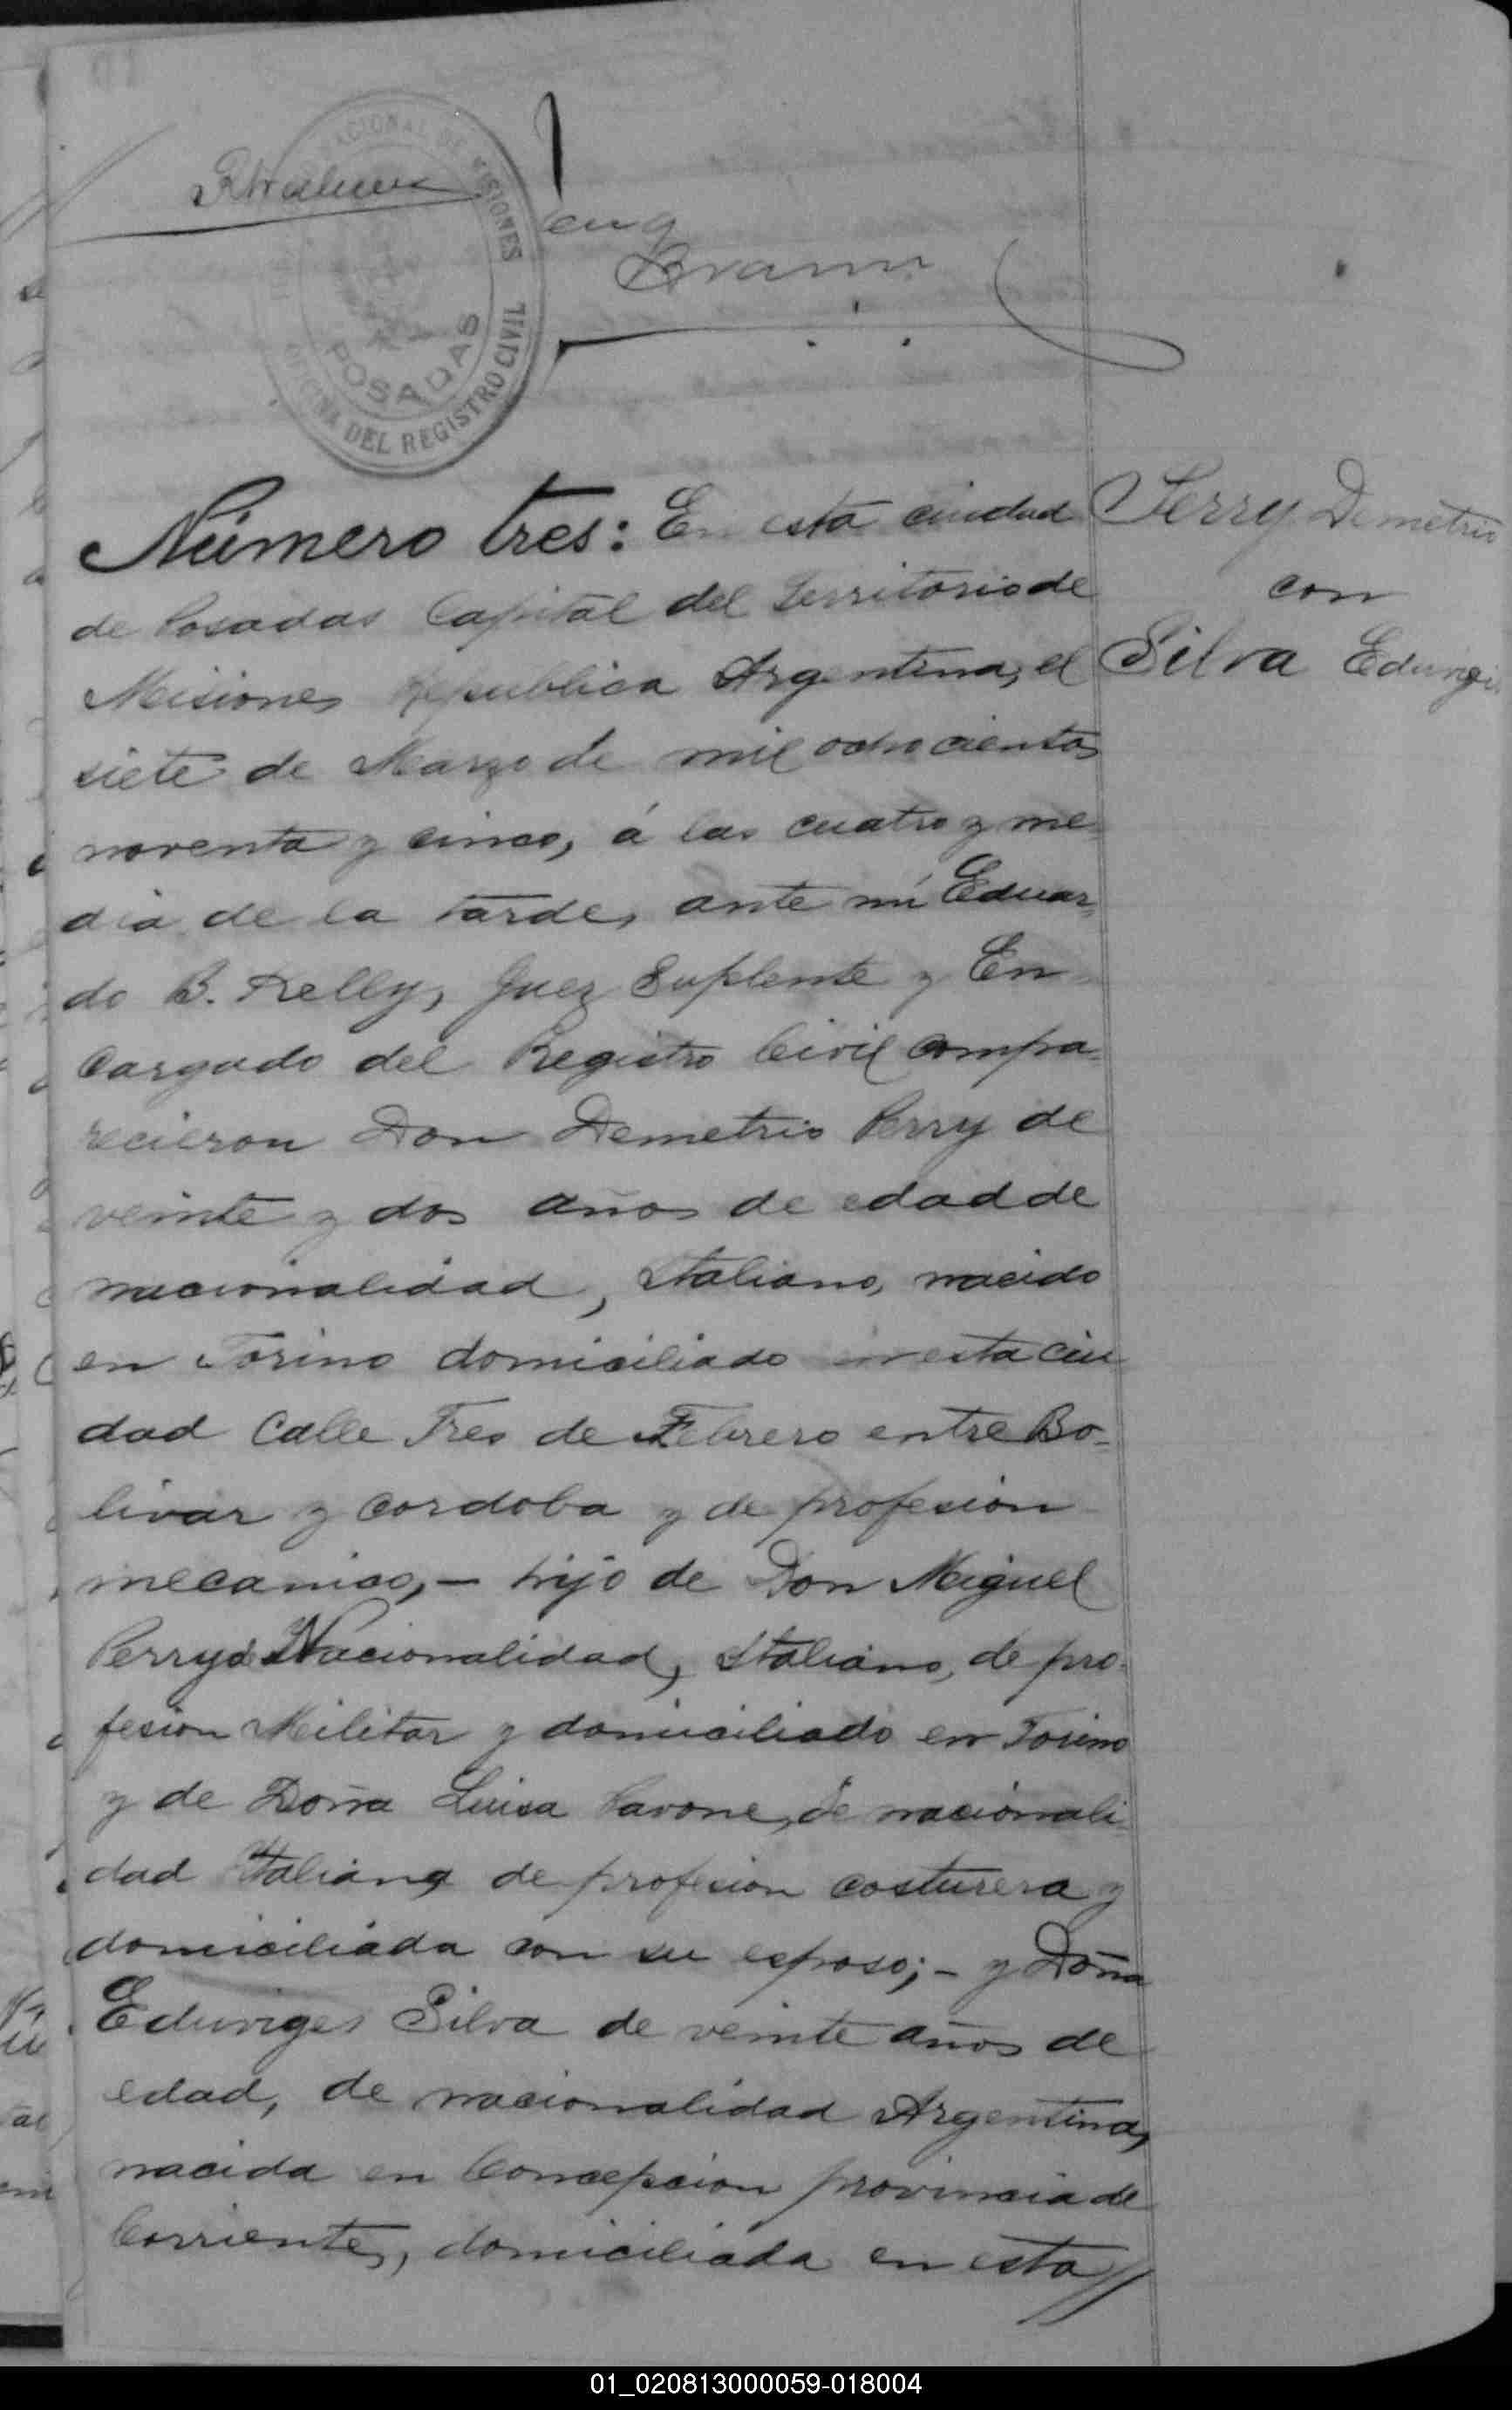 NACIONAL DE MISIONES
POSADAS
OFICINA DEL REGISTRO CIVIL
Número tres: En esta ciudad
de Posadas Capital del Territorio de
Misiones Republica Argentina, el
siete de Marzo de mil ochocientos
noventa y cinco, á las cuatro y me-
dia de la tarde, ante mí Eduar-
do B. Kelly, Juez Suplente y En-
cargado del Registro Civil compa-
recieron Don Demetrio Perry de
veinte y dos años de edad de
nacionalidad, Italiano, nacido
en Torino domiciliado en esta ciu
dad Calle Tres de Febrero entre Bo-
livar y Cordoba y de profesion
mecanico, - hijo de Don Miguel
Perry de Nacionalidad, Italiano, de pro-
fesion Militar y domiciliado en Torino
y de Doña Luisa Pavone, de nacionali-
dad Italiana de profesion costurera y
domiciliada con su esposo; - y Doña
Eduviges Silva de veinte años de
edad, de nacionalidad Argentina,
nacida en Concepcion provincia de
Corrientes, domiciliada en esta //
Perry Demetrio
con
Silva Eduvigis
01_020813000059-018004